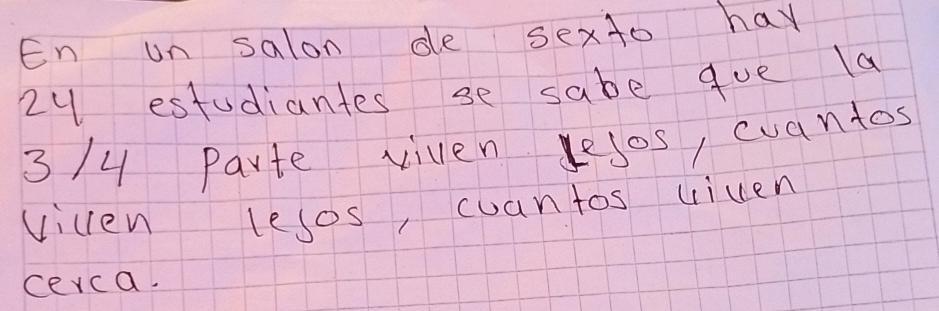 En un salon de sexto hay
24 estudiantes se sabe que la
3/4 Parte viven lejos, cuantos
Viven lejos, cuantos viven
cerca.